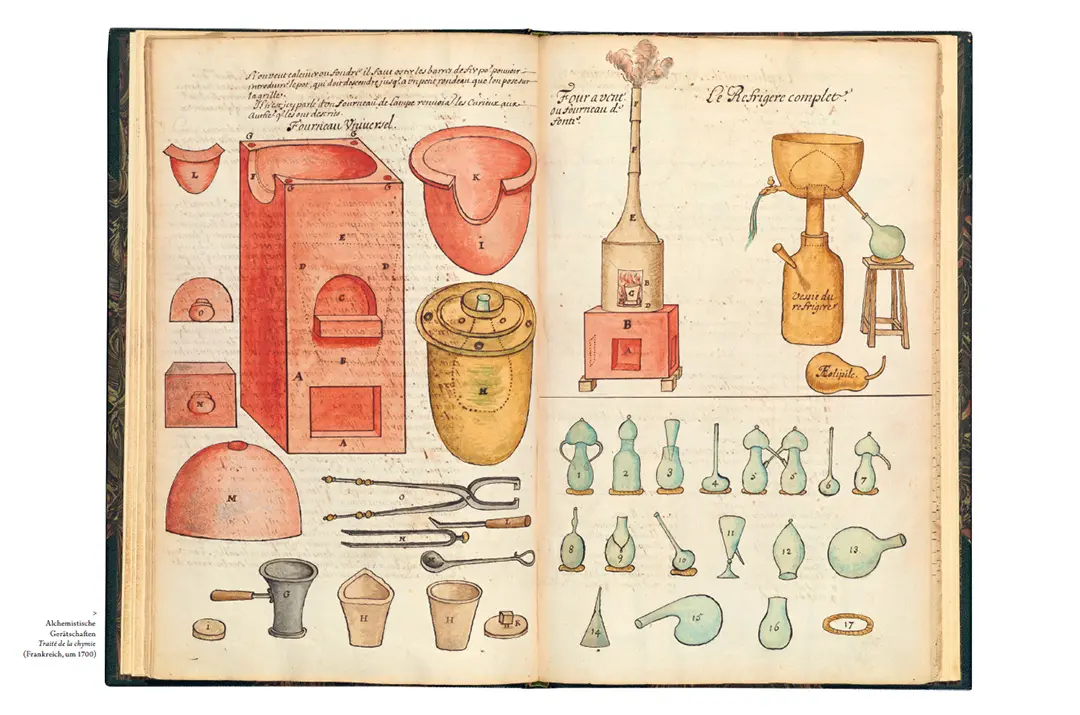 Si on veut calciner ou fondre il faut oster les barres de fer po.r pouvoir
introduire le pot, qui doit descendre jusqu'a un petit rondeau que l'on pose sur
la grille.
parle d'un fourneau de lampe les Curieux aux
qui les ont descrits.
Fourneau Vniuersel.
G
G
G
G
F
L
K
I
E
D
D
C
B
A
A
O
N
M
H
O
P
N
Q
G
I
H
H
R
Four a vent
ou fourneau de
fonte
Le Refrigere complet.
F
F
E
B
C
D
B
A
Vessie du
refrigere
Æolipile
1
2
3
4
5
5
6
7
8
9
10
11
12
13
14
15
16
17
>
Alchemistische
Gerätschaften
Traité de la chymie
(Frankreich, um 1700)